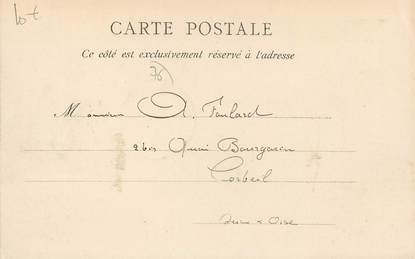 lot
CARTE POSTALE
Ce côté est exclusivement réservé à l'adresse
76
Monsieur A. Foulard
26 bis Quai Bourgoin
Corbeil
Seine & Oise